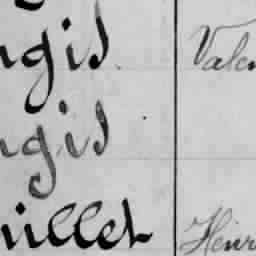 ngis Valen
ngis
uillet Henr